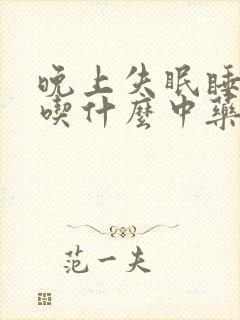 晚上失眠睡
喫什麼中藥
范一夫